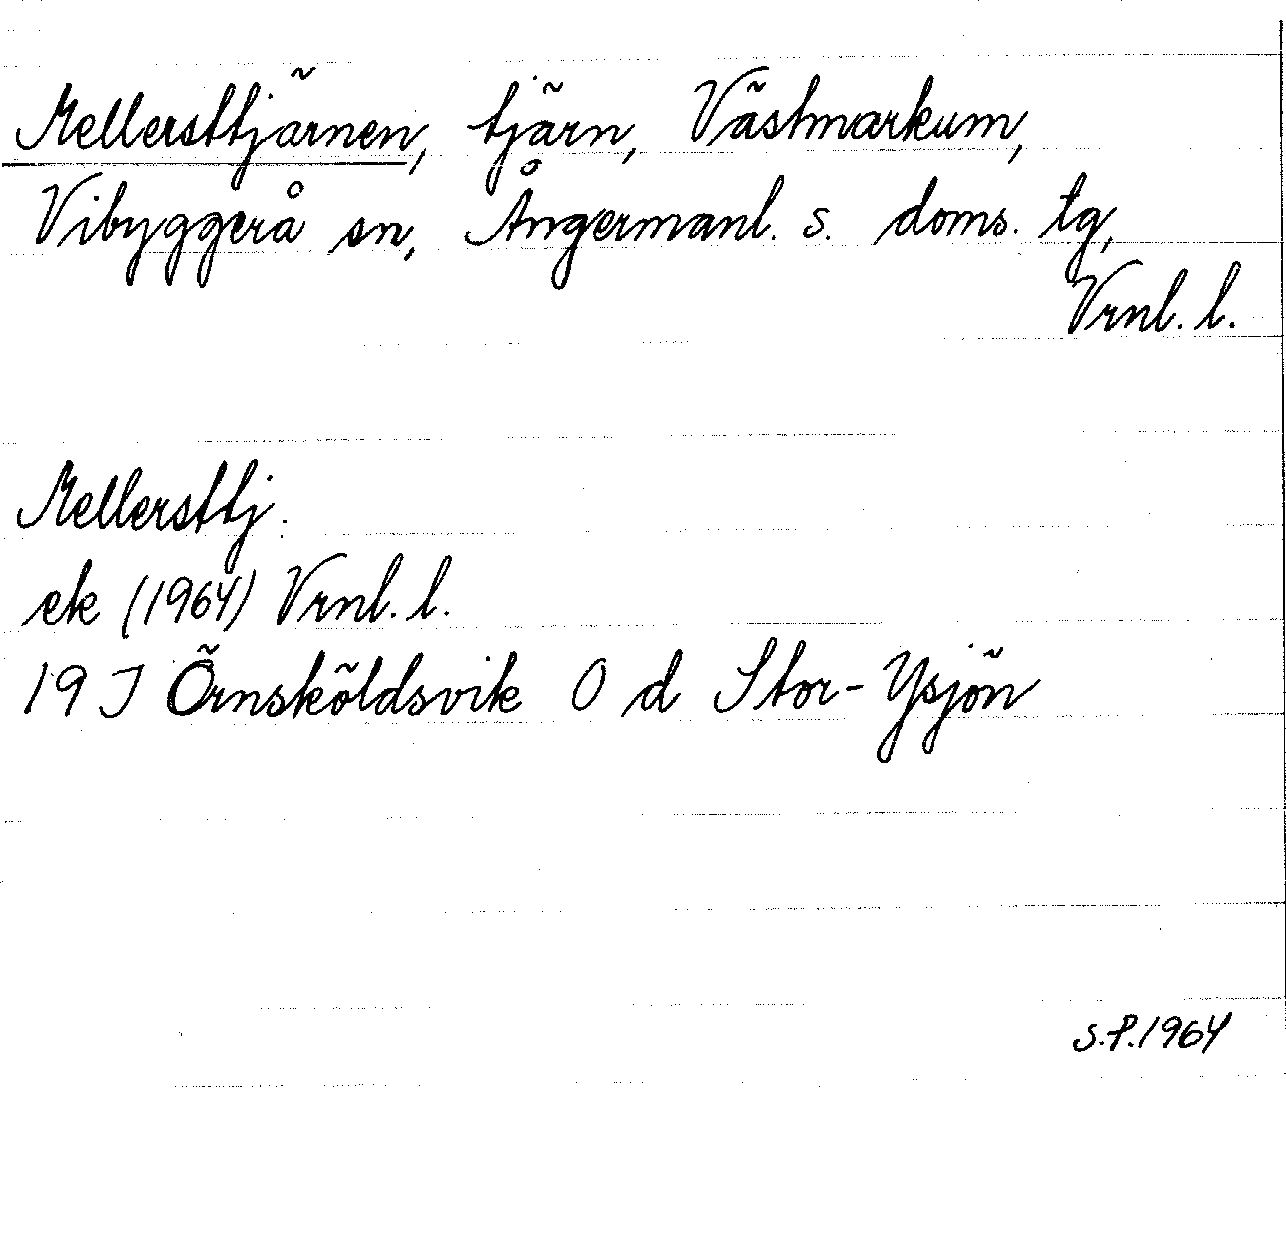 Mellersttjärnen, tjärn, Västmarkum,
Vibyggerå sn, Ångermanl. s. doms. tg,
Vrnl. l.
Mellersttj.
ek (1964) Vrnl. l.
19 J Örnsköldsvik O d Stor-Ysjön
S.P. 1964